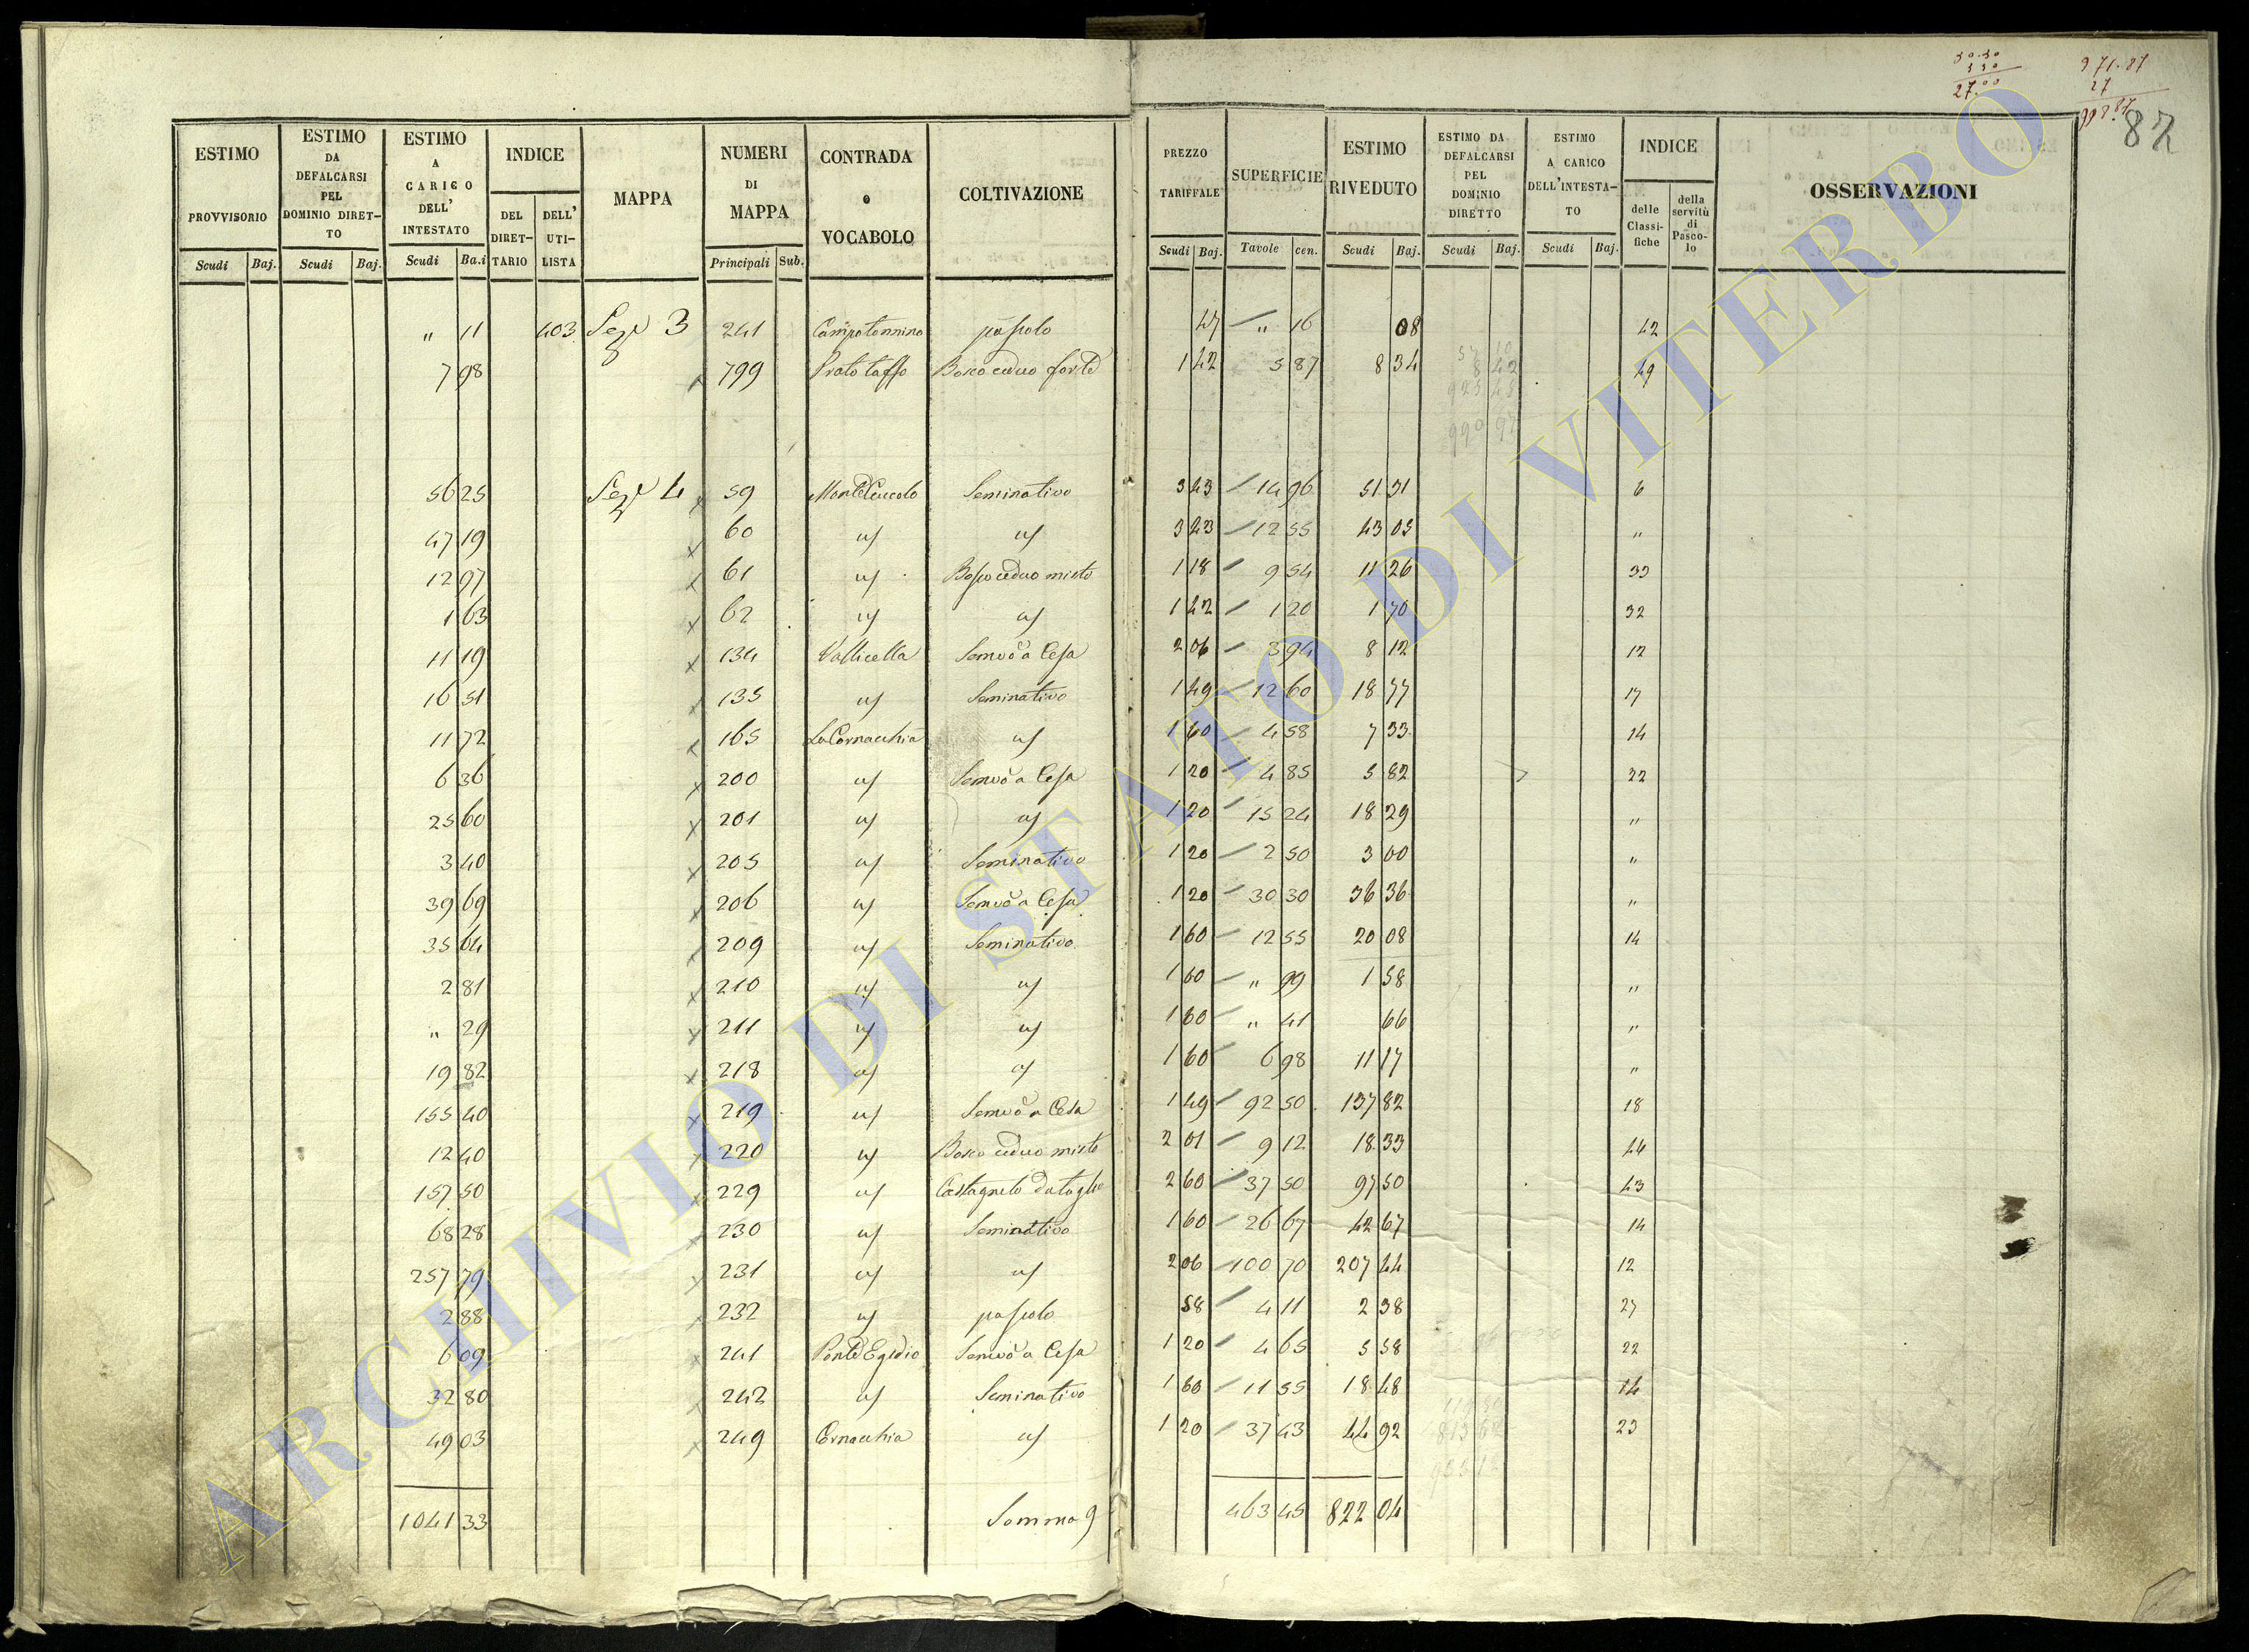 50.30
3 30
27.00
971.87
27
998.87
87
ESTIMO PROVVISORIO | ESTIMO DA DEFALCARSI PEL DOMINIO DIRETTO | ESTIMO A CARICO DELL' INTESTATO | INDICE DEL DIRETTARIO | DELL' UTILISTA | MAPPA | NUMERI DI MAPPA | CONTRADA o VOCABOLO | COLTIVAZIONE | PREZZO TARIFFALE | SUPERFICIE | ESTIMO RIVEDUTO | ESTIMO DA DEFALCARSI PEL DOMINIO DIRETTO | ESTIMO A CARICO DELL'INTESTATO | INDICE delle Classifiche | della servitù di Pascolo | OSSERVAZIONI
Scudi | Baj. | Scudi | Baj. | Scudi | Ba.i | Principali | Sub. | Scudi | Baj. | Tavole | cen. | Scudi | Baj. | Scudi | Baj. | Scudi | Baj.
" 11 | 403 | Sez.e 3 | 241 | Campotonnino | pascolo | 47 | " 16 | 08 | 42
7 98 | 799 | Prato taffo | Bosco ceduo forte | 1 42 | 5 87 | 8 34 | 49
56 25 | Sez.e 4 | 59 | Monte Cuccolo | Seminativo | 3 43 | 14 96 | 51 31 | 6
47 19 | 60 | " | " | 3 43 | 12 55 | 43 05 | "
12 97 | 61 | " | Bosco ceduo misto | 1 18 | 9 54 | 11 26 | 33
1 63 | 62 | " | " | 1 42 | 1 20 | 1 70 | 32
11 19 | 134 | Vallicella | Semvo a Cesa | 2 06 | 3 94 | 8 12 | 12
16 51 | 135 | " | Seminativo | 1 49 | 12 60 | 18 77 | 17
11 72 | 165 | La Cornacchia | " | 1 60 | 4 58 | 7 33 | 14
6 36 | 200 | " | Semvo a Cesa | 1 20 | 4 85 | 5 82 | 22
25 60 | 201 | " | " | 1 20 | 15 24 | 18 29 | "
3 40 | 205 | " | Seminativo | 1 20 | 2 50 | 3 00 | "
39 69 | 206 | " | Semvo a Cesa | 1 20 | 30 30 | 36 36 | "
35 64 | 209 | " | Seminativo | 1 60 | 12 55 | 20 08 | 14
2 81 | 210 | " | " | 1 60 | " 99 | 1 58 | "
" 29 | 211 | " | " | 1 60 | " 41 | 66 | "
19 82 | 218 | " | " | 1 60 | 6 98 | 11 17 | "
155 40 | 219 | " | Semvo a Cesa | 1 49 | 92 50 | 137 82 | 18
12 40 | 220 | " | Bosco ceduo misto | 2 01 | 9 12 | 18 33 | 44
157 50 | 229 | " | Castagneto da taglio | 2 60 | 37 50 | 97 50 | 43
68 28 | 230 | " | Seminativo | 1 60 | 26 67 | 42 67 | 14
257 79 | 231 | " | " | 2 06 | 100 70 | 207 44 | 12
2 88 | 232 | " | pascolo | 58 | 4 11 | 2 38 | 27
6 09 | 241 | Ponte Egidio | Semvo a Cesa | 1 20 | 4 65 | 5 58 | 22
32 80 | 242 | " | Seminativo | 1 60 | 11 55 | 18 48 | 14
49 03 | 249 | Cornacchia | " | 1 20 | 37 43 | 44 92 | 23
1041 33 | Somma | 463 45 | 822 04
ARCHIVIO DI STATO DI VITERBO